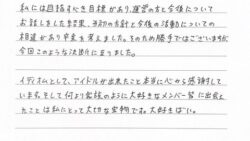 私には目指すべき目標があり、運営の方と今後について
お話しをした結果、当初の方針と今後の活動についての
相違があり卒業を考えました。そのため勝手ではございますが
今回このような決断に至りました。
イディオムとして、アイドルが出来たこと本当に心から感謝して
います。そして何より家族のように大好きなメンバー皆に出会え
たことは私にとって大切な宝物です。大好きばい。